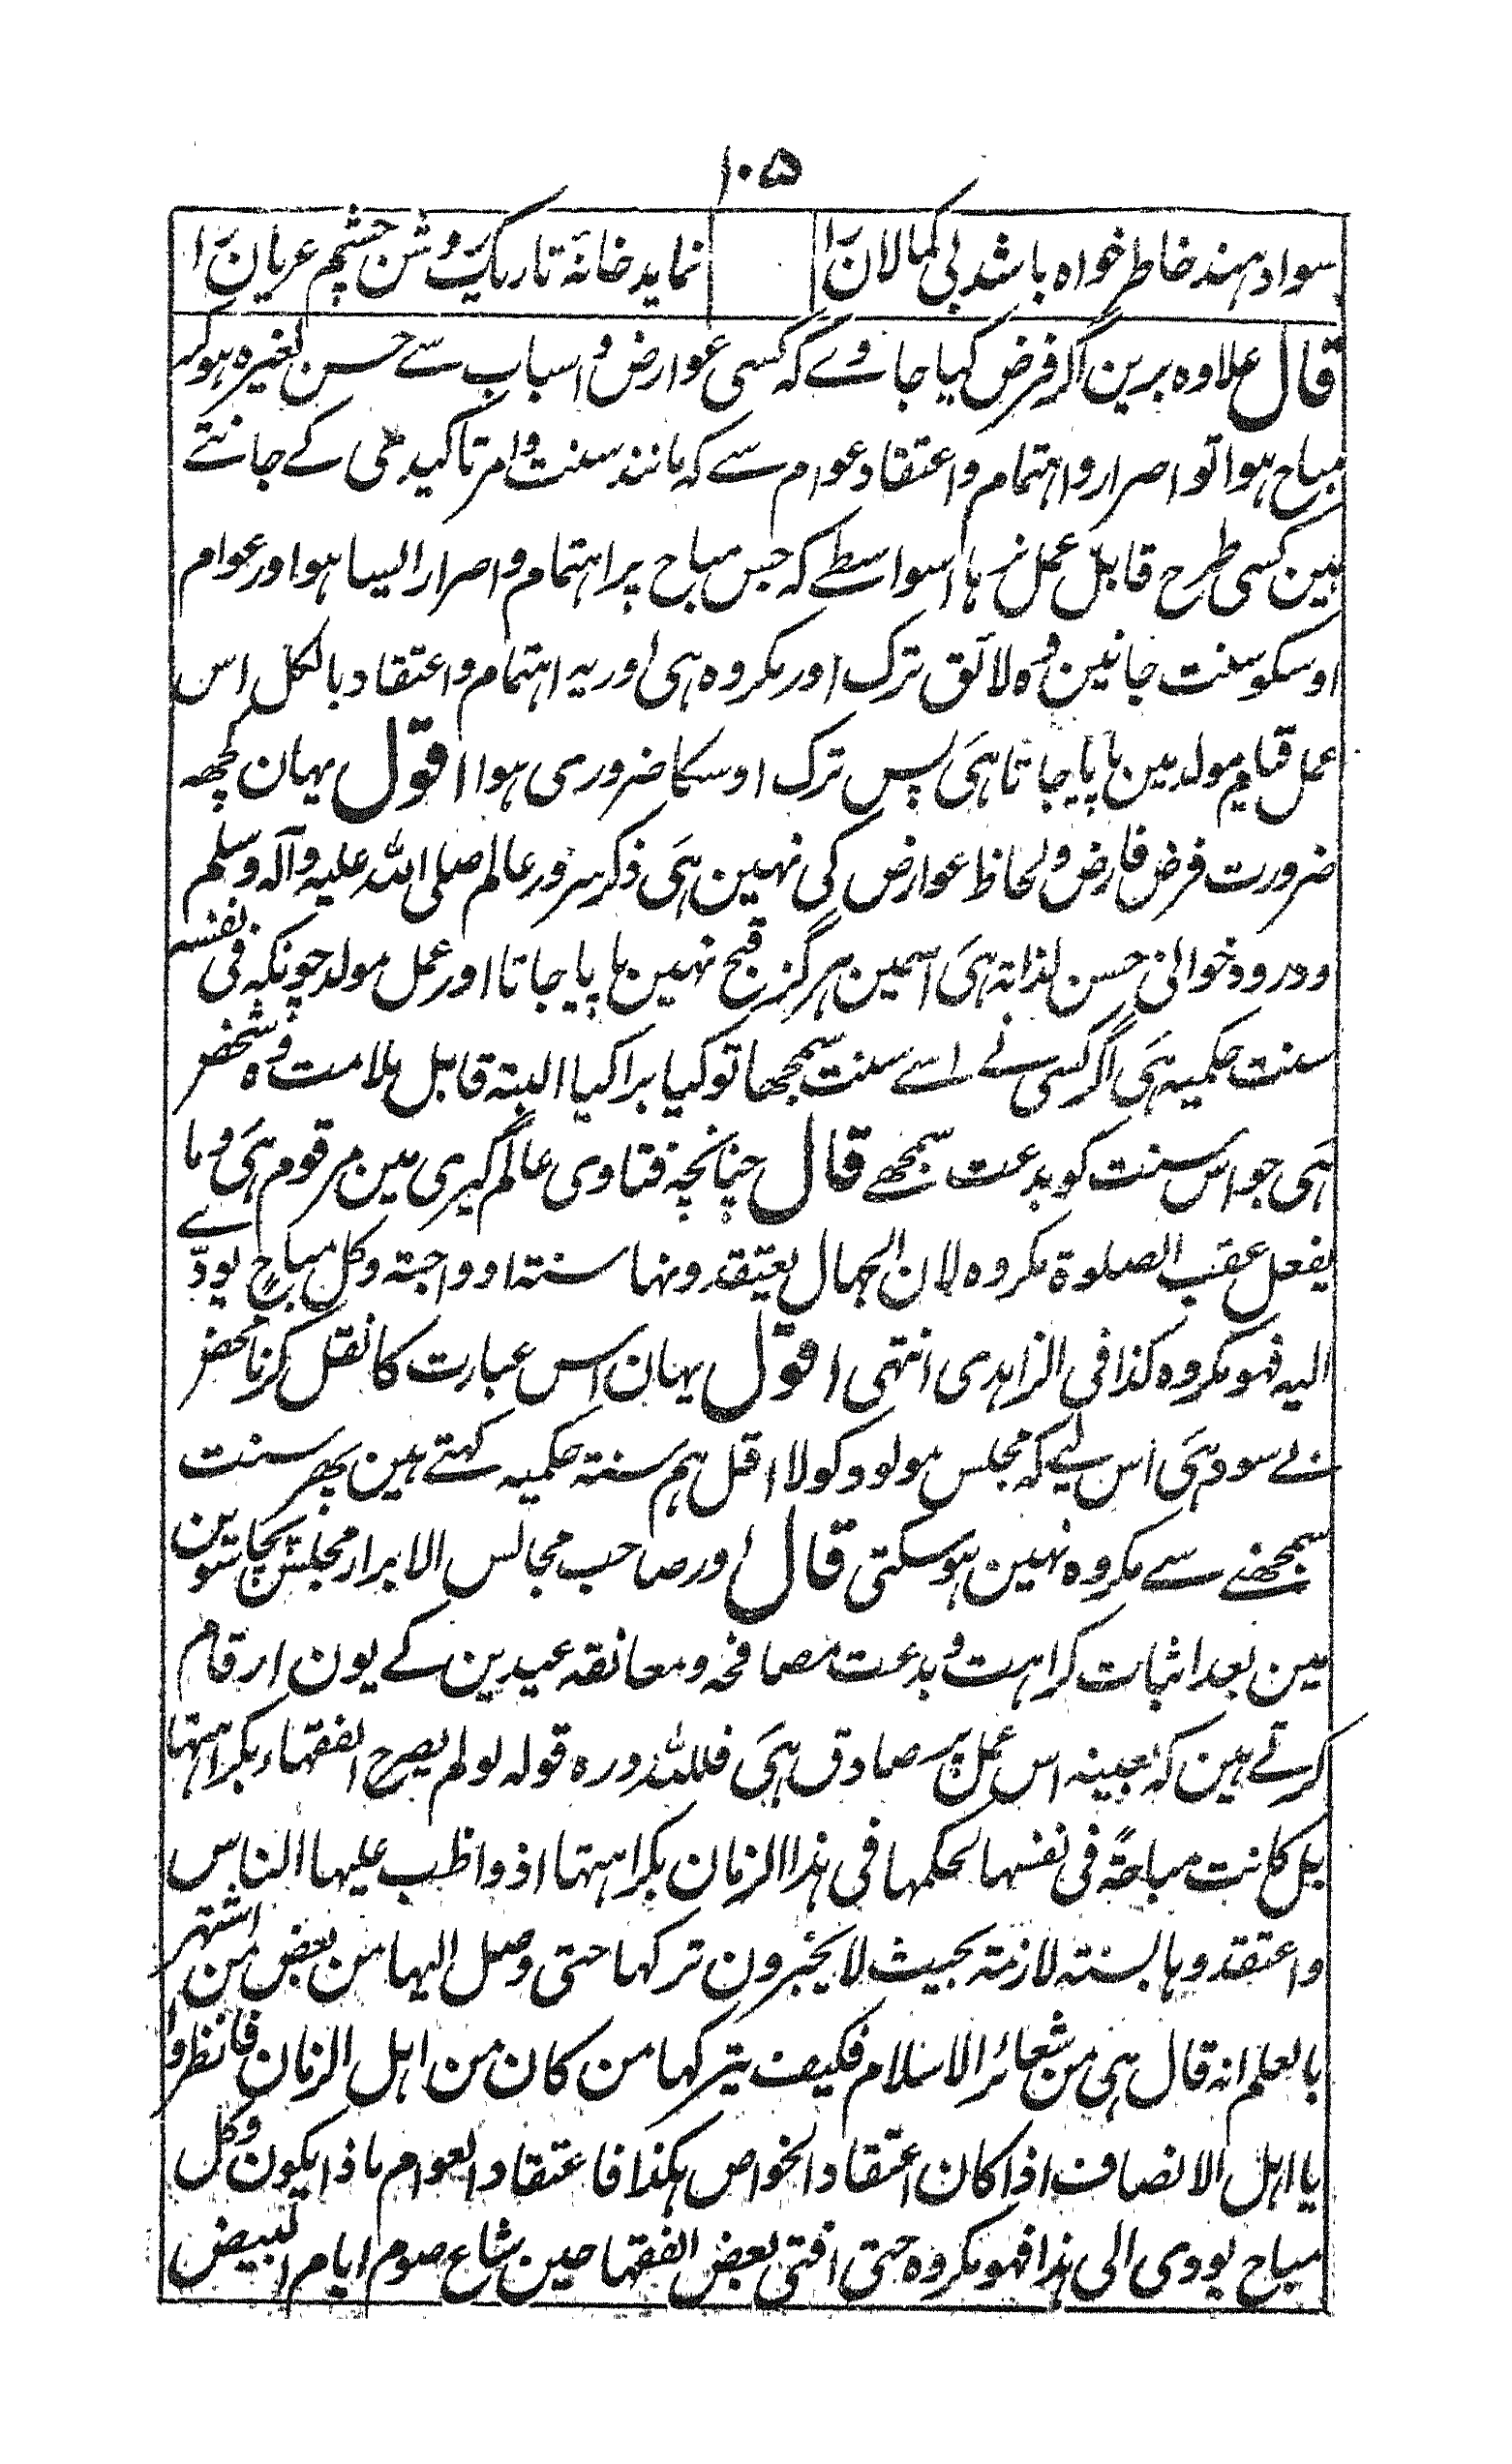 ۱۰۵
سواد ہند خاطر خواہ باشد بی کمالان را نماید خانۂ تاریک روشن چشم عریان را
قال علاوہ برین اگر فرض کیا جاوے کہ کسی عوارض و اسباب سے حسن لغیرہ ہوکر
مباح ہوا تو اصرار و اہتمام و اعتقاد عوام سے کہ مانند سنت و امر تاکیدی کے جانتے
ہین کسی طرح قابل عمل نرہا اسواسطے کہ جس مباح پر اہتمام و اصرار ایسا ہوا اور عوام
اوسکو سنت جانین وہ لائق ترک اور مکروہ ہی اور یہ اہتمام و اعتقاد بالکل اس
عمل قیام مولد مین پایا جاتا ہی پس ترک اوسکا ضروری ہوا اقول یہان کچھ
ضرورت فرض فارض و لحاظ عوارض کی نہین ہی ذکر سرور عالم صلی اللہ علیہ وآلہ وسلم
و درود خوانی حسن لذاتہ ہی اسمین ہرگز قبح نہین پایا جاتا اور عمل مولد چونکہ فی نفسہ
سنت حکمیہ ہی اگر کسی نے اسے سنت سمجھا تو کیا برا کیا البتہ قابل ملامت وہ شخص
ہی جو اس سنت کو بدعت سمجھے قال چنانچہ فتاوی عالمگیری مین مرقوم ہی وما
یفعل عقب الصلوة مکروہ لان الجہال یعتقدونہا سنتہ او واجبتہ وکل مباح یودّے
الیہ فہو مکروہ کذا فی الزاہدی انتہی اقول یہان اس عبارت کا نقل کرنا محض
بے سود ہی اس لیے کہ مجلس مولود کو لااقل ہم سنتہ حکمیہ کہتے ہین پھر سنت
سمجھنے سے مکروہ نہین ہوسکتی قال اور صاحب مجالس الابرار مجلس پچاسوین
مین بعد اثبات کراہت و بدعت مصافحہ و معانقہ عیدین کے یون ارقام
کرتے ہین کہ بعینہ اس عمل پر صادق ہی فللّٰہ درہ قولہ لو لم یصرح الفقہاء بکراہتہا
بل کانت مباحۃً فی نفسہا لحکمہا فی ہذا الزمان بکراہتہا اذ واظب علیہا الناس
واعتقدوہا بسنتہ لازمتہ بحیث لا یخبرون ترکہا حتی وصل الیہا من بعض من اشتہر
بالعلم انہ قال ہی من شعائر الاسلام فکیف یترکہا من کان من اہل الزمان فانظروا
یا اہل الانصاف اذا کان اعتقاد الخواص ہکذا فاعتقاد العوام ماذا یکون وکل
مباح یودی الی ہذا فہو مکروہ حتی افتی بعض الفقہا حین شاع صوم ایام البیض